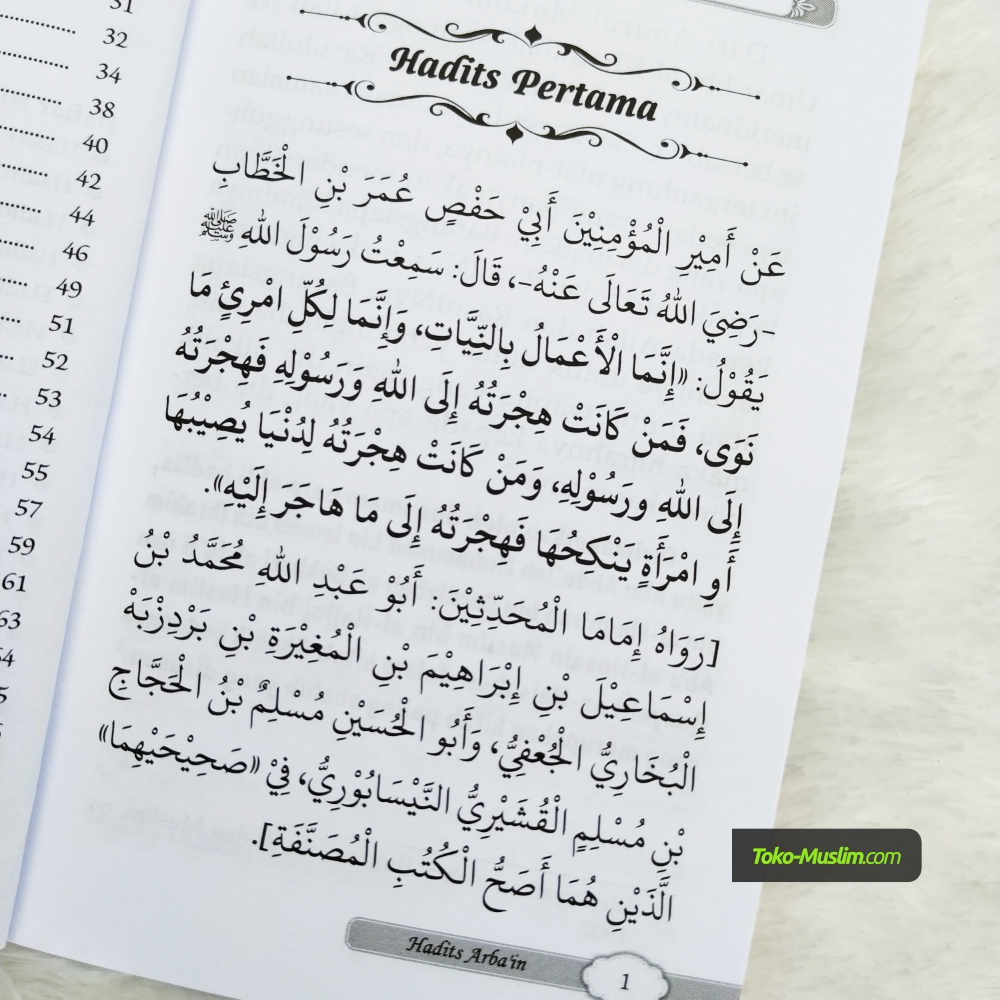 31
32
34
38
40
42
44
46
49
51
52
53
54
55
57
59
61
63
Hadits Pertama
عَنْ أَمِيْرِ الْمُؤْمِنِيْنَ أَبِيْ حَفْصٍ عُمَرَ بْنِ الْخَطَّابِ
-رَضِيَ اللهُ تَعَالَى عَنْهُ-، قَالَ: سَمِعْتُ رَسُوْلَ اللهِ ﷺ
يَقُوْلُ: «إِنَّمَا الْأَعْمَالُ بِالنِّيَّاتِ، وَإِنَّمَا لِكُلِّ امْرِئٍ مَا
نَوَى، فَمَنْ كَانَتْ هِجْرَتُهُ إِلَى اللهِ وَرَسُوْلِهِ فَهِجْرَتُهُ
إِلَى اللهِ ورَسُوْلِهِ، وَمَنْ كَانَتْ هِجْرَتُهُ لِدُنْيَا يُصِيْبُهَا
أَوِ امْرَأَةٍ يَنْكِحُهَا فَهِجْرَتُهُ إِلَى مَا هَاجَرَ إِلَيْهِ».
[رَوَاهُ إِمَامَا الْمُحَدِّثِيْنَ: أَبُوْ عَبْدِ اللهِ مُحَمَّدُ بْنُ
إِسْمَاعِيْلَ بْنِ إِبْرَاهِيْمَ بْنِ الْمُغِيْرَةِ بْنِ بَرْدِزْبَهْ
الْبُخَارِيُّ الْجُعْفِيُّ، وَأَبُو الْحُسَيْنِ مُسْلِمُ بْنُ الْحَجَّاجِ
بْنِ مُسْلِمٍ الْقُشَيْرِيُّ النَّيْسَابُوْرِيُّ، فِيْ «صَحِيْحَيْهِمَا»
الَّذَيْنِ هُمَا أَصَحُّ الْكُتُبِ الْمُصَنَّفَةِ].
Hadits Arba'in
1
Toko-Muslim.com